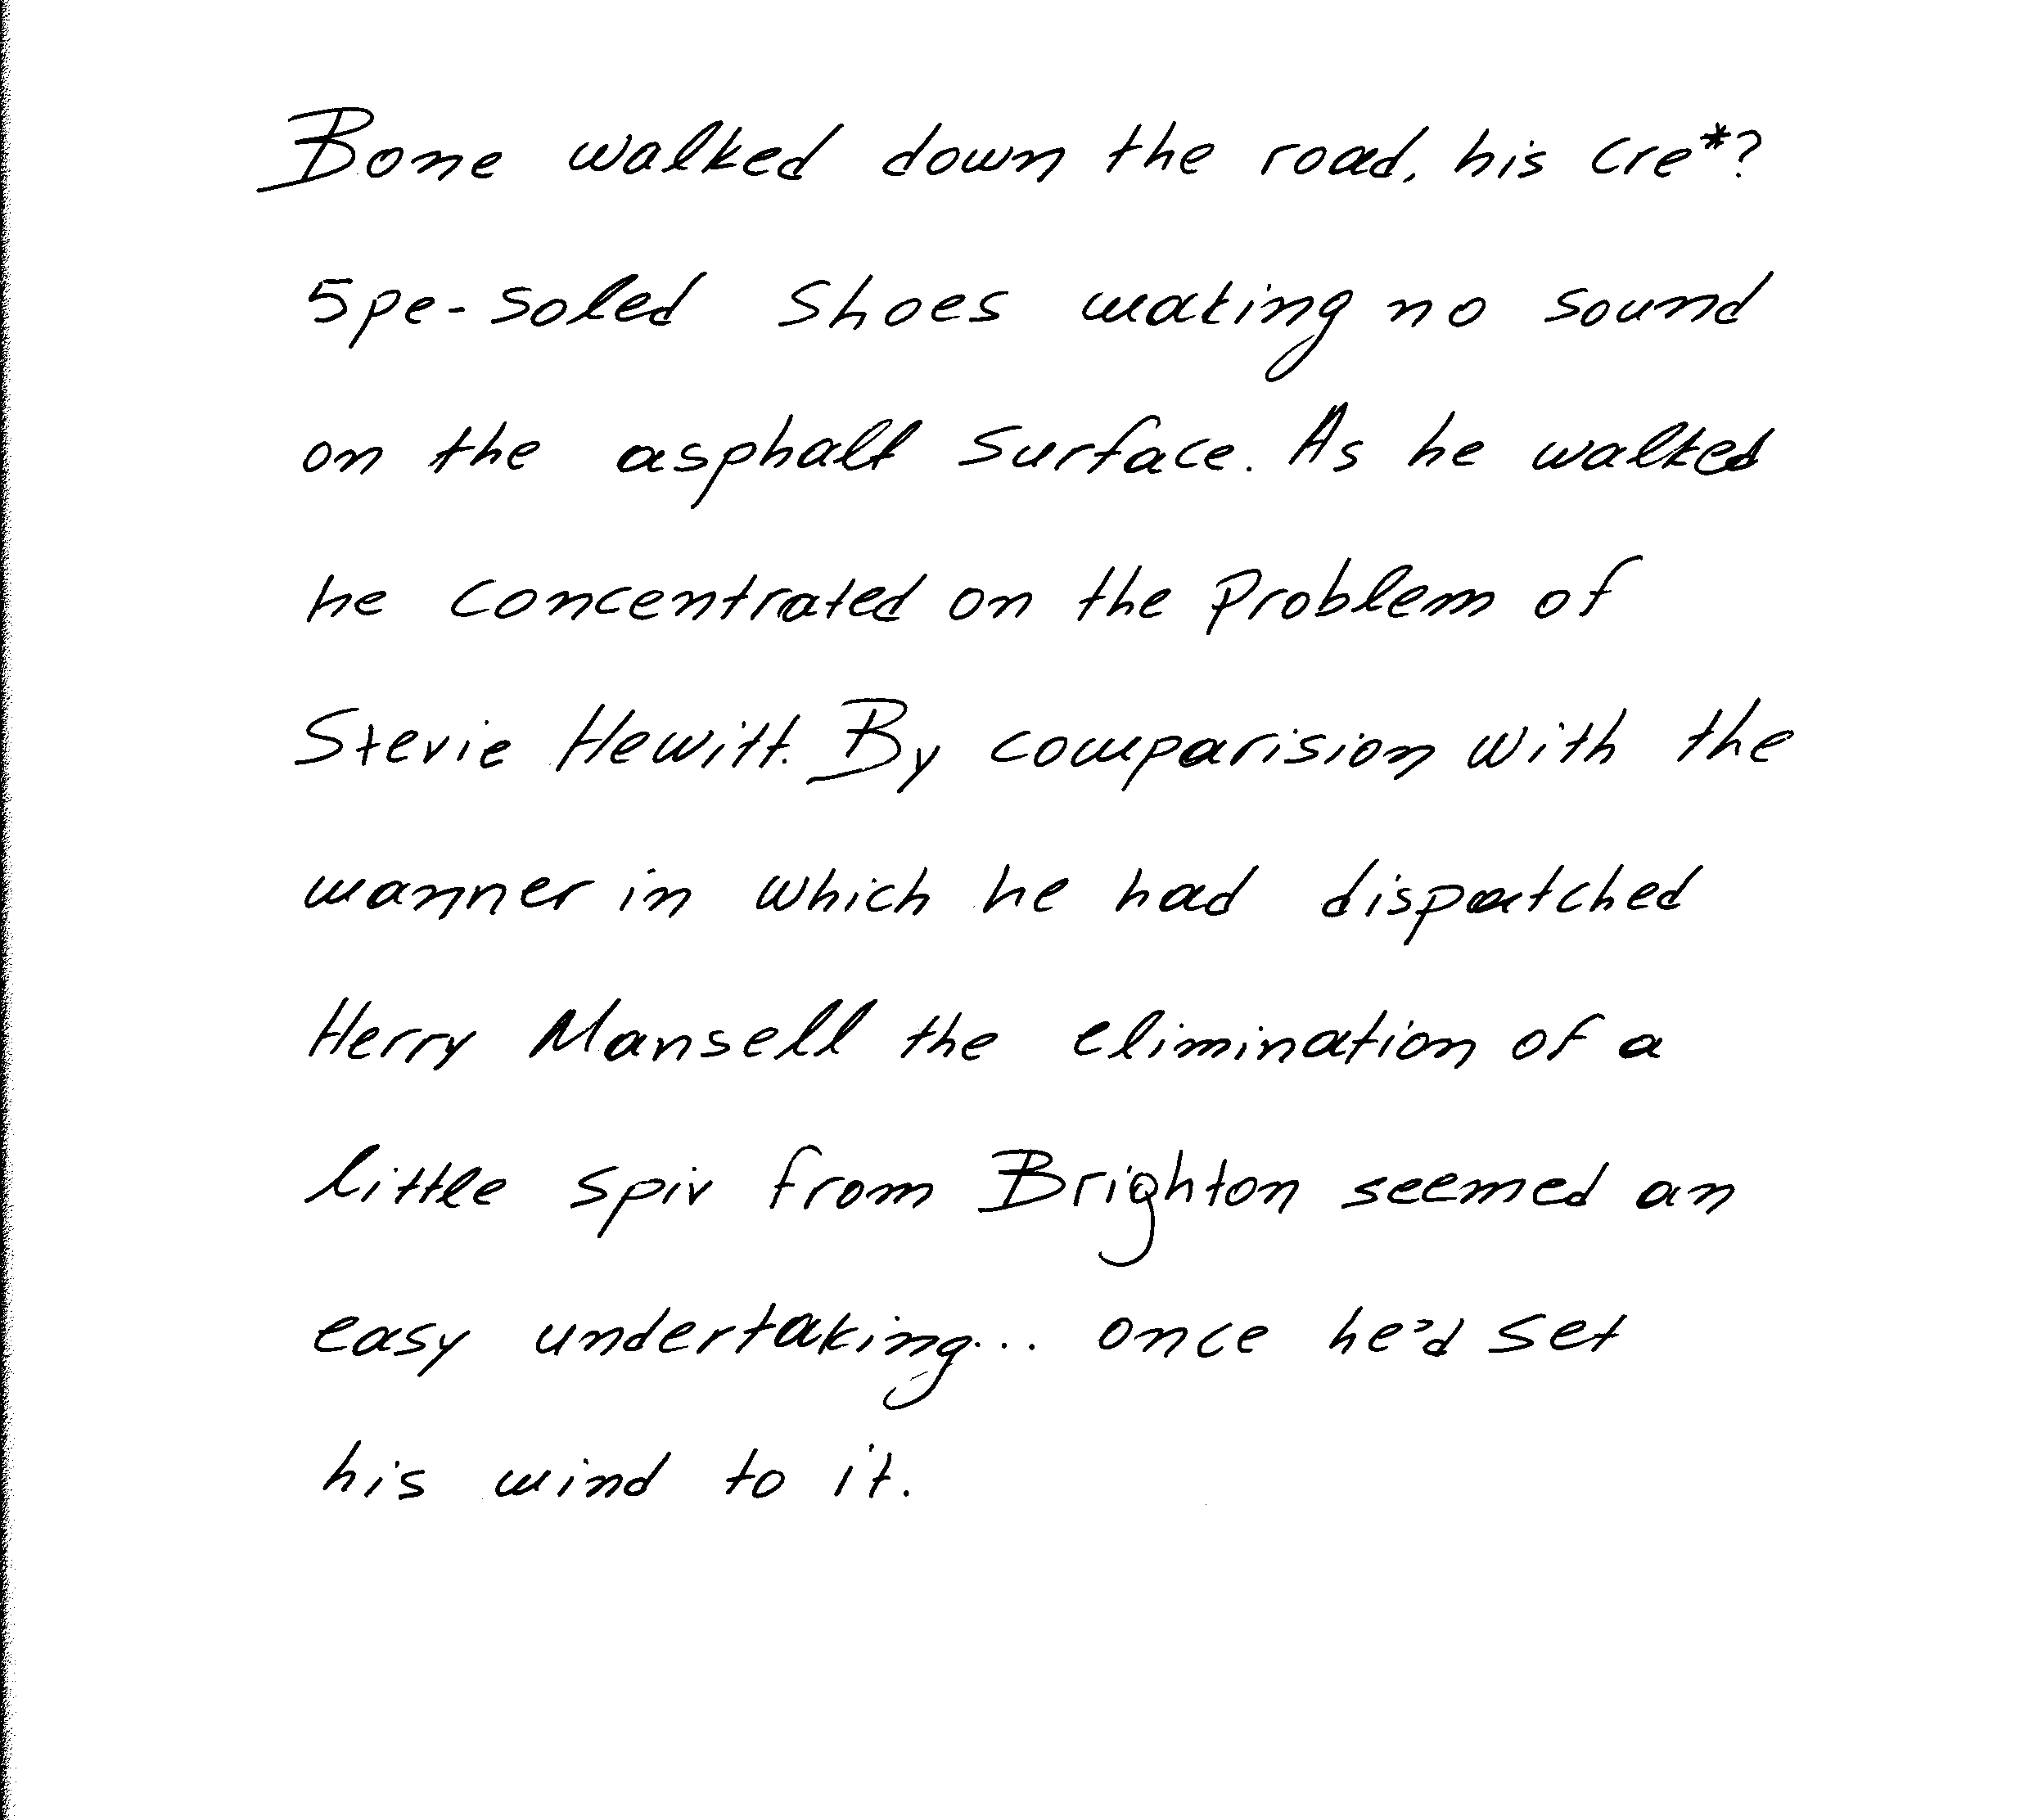 Bone walked down the road, his cre*?
5pe-soled shoes making no sound
on the asphalt surface. As he walked
he concentrated on the problem of
Stevie Hewitt. By comparision with the
manner in which he had dispatched
Herry Mansell the elimination of a
little spiv from Brighton seemed an
easy undertaking... once he'd set
his mind to it.